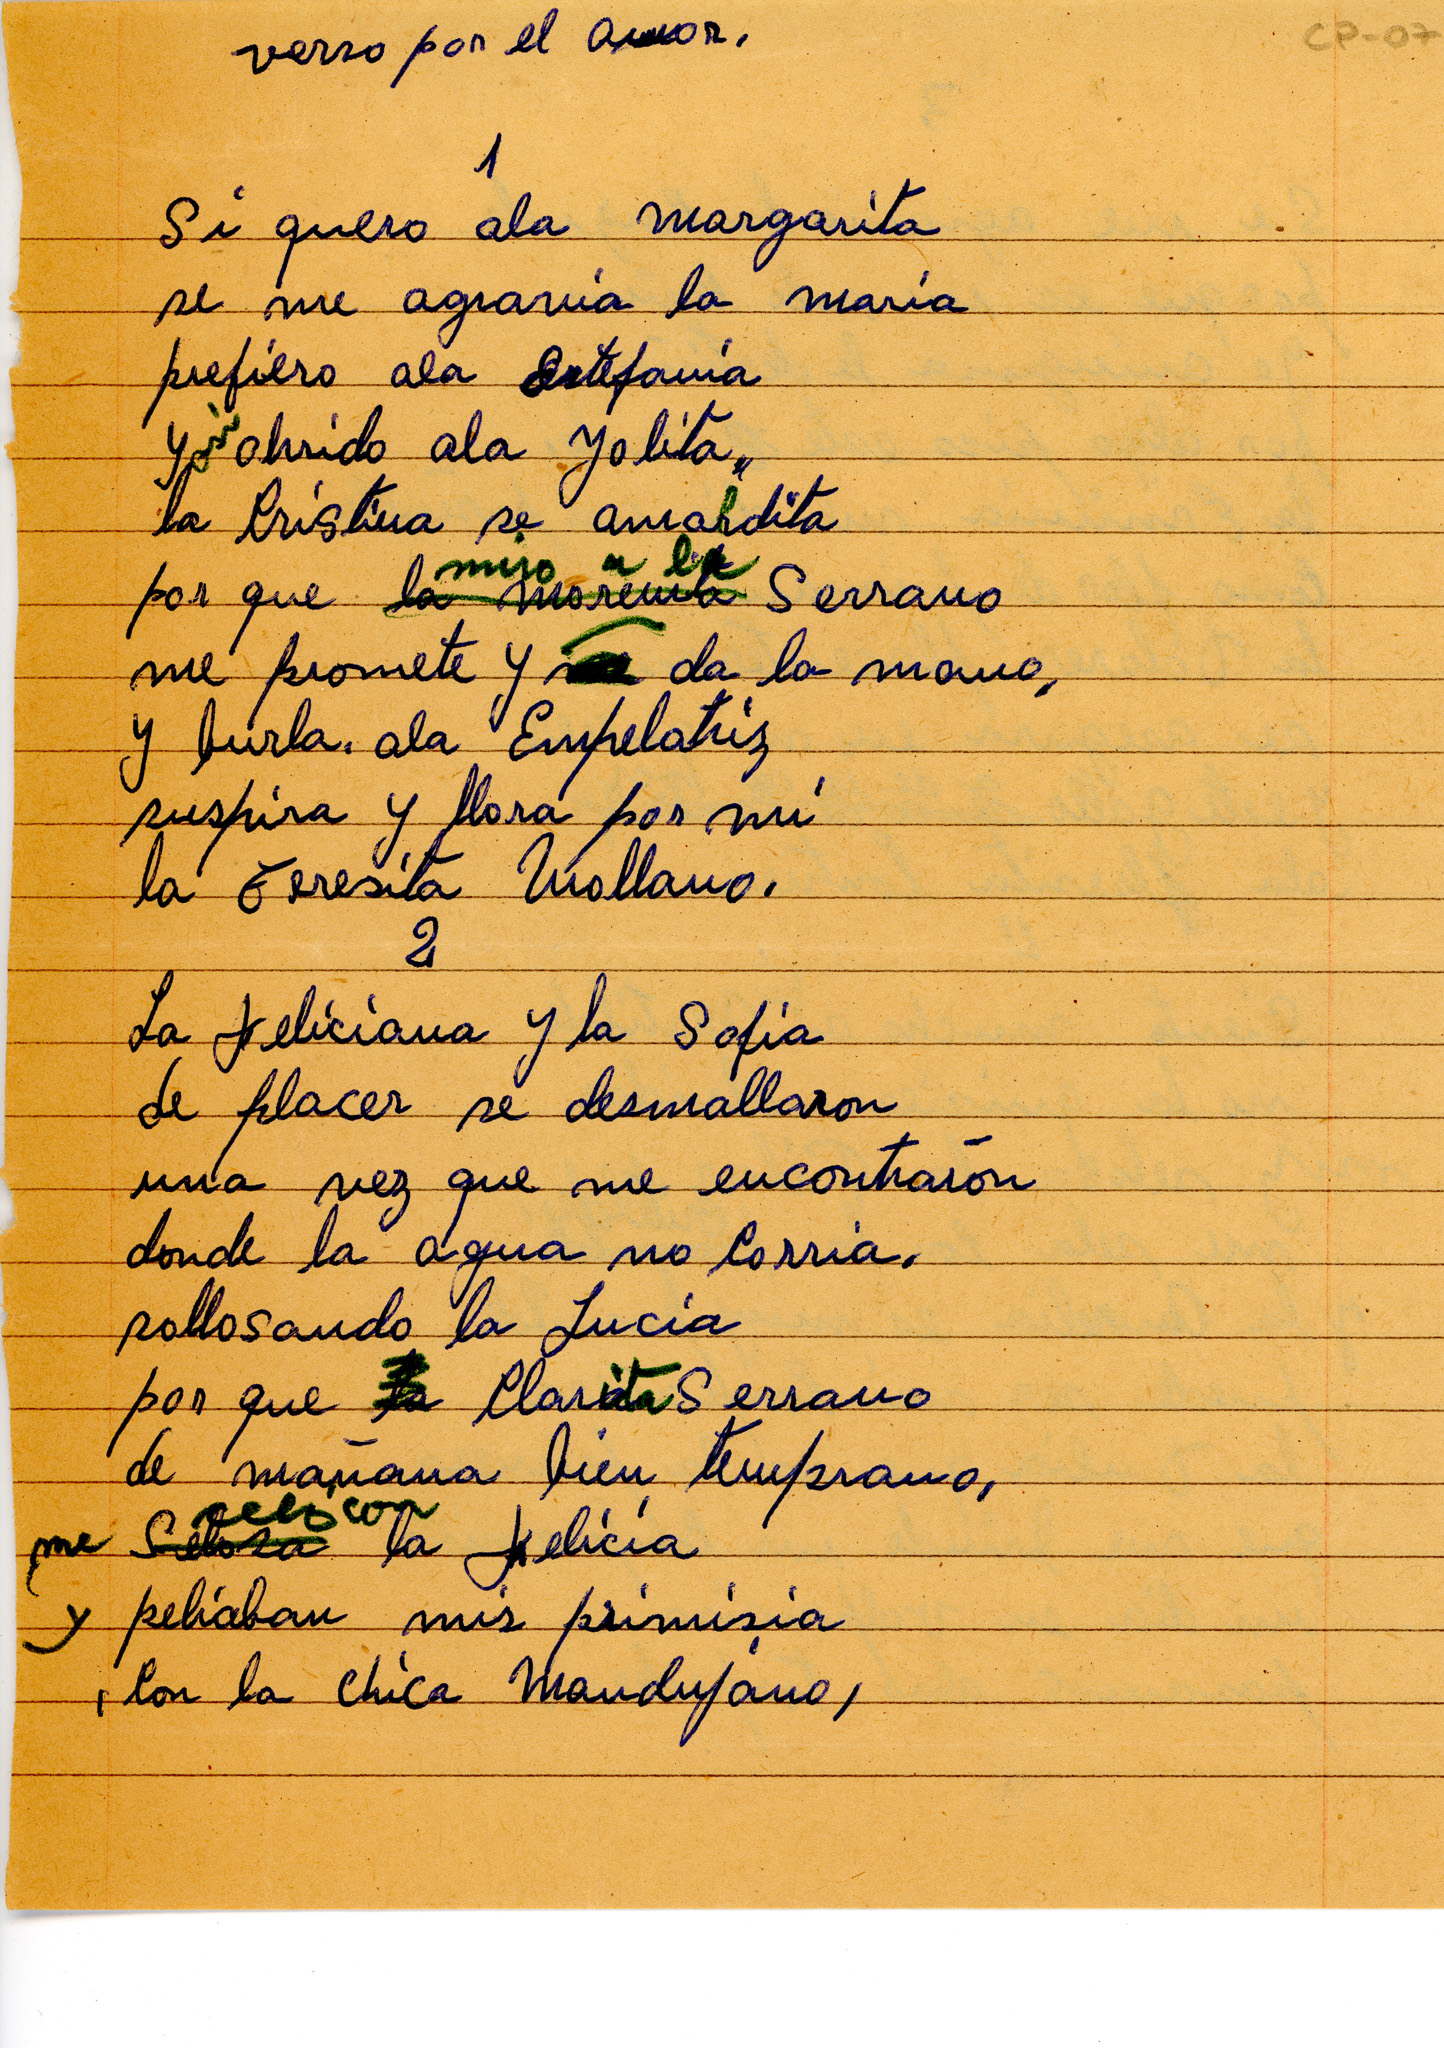 verso por el amor.
CP-07
1
Si quero ala Margarita
se me agravia la maria
prefiero ala Estefania
y olvido ala Yolita„
la Cristina se amaldita
miro a la
por que la morenita Serrano
me promete y da la mano,
y burla. ala Empelatriz
suspira y llora por mi
la Teresita Mollano.
2
La Feliciana y la Sofia
de placer se desmallaron
una vez que me encontrarón
donde la agua no Corria.
sollosando la Lucia
por que Clarita Serrano
de mañana bien temprano,
con
me Selosa la Felicia
y peliaban mis primisia
, Con la chica Mandujano,